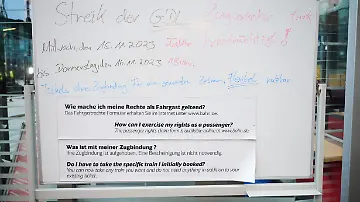 Streik der GDL
Mittwoch, den 15.11.2023
bis Donnerstag, den 16.11.2023
Tickets ohne Zugbindung
Wie mache ich meine Rechte als Fahrgast geltend?
Das Fahrgastrechte Formular erhalten Sie im Internet unter www.bahn.de.
How can I exercise my rights as a passenger?
The passenger rights claim form is available online at www.bahn.de.
Was ist mit meiner Zugbindung ?
Ihre Zugbindung ist aufgehoben. Eine Bescheinigung ist nicht notwendig.
Do I have to take the specific train I initially booked?
You can now take any train you want and do not need anything in addition to your
existing ticket.